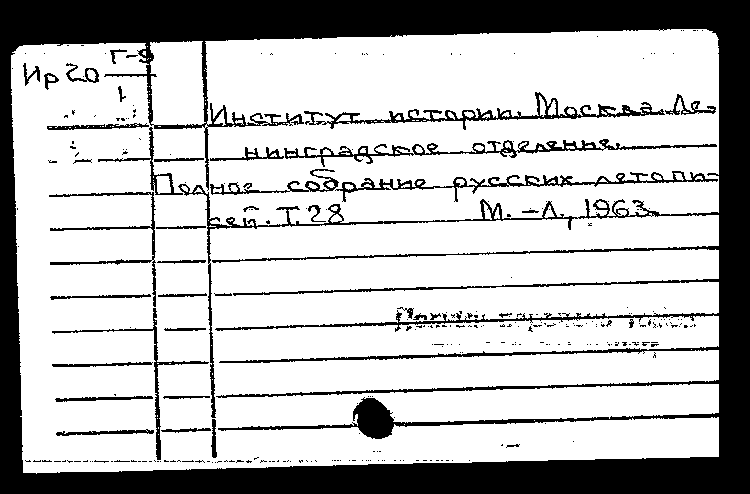 Г-9
Ир 20
1
Институт истории. Москва. Ле-
нинградское отделение.
Полное собрание русских летопи-
сей. Т. 28 М.-Л., 1963.